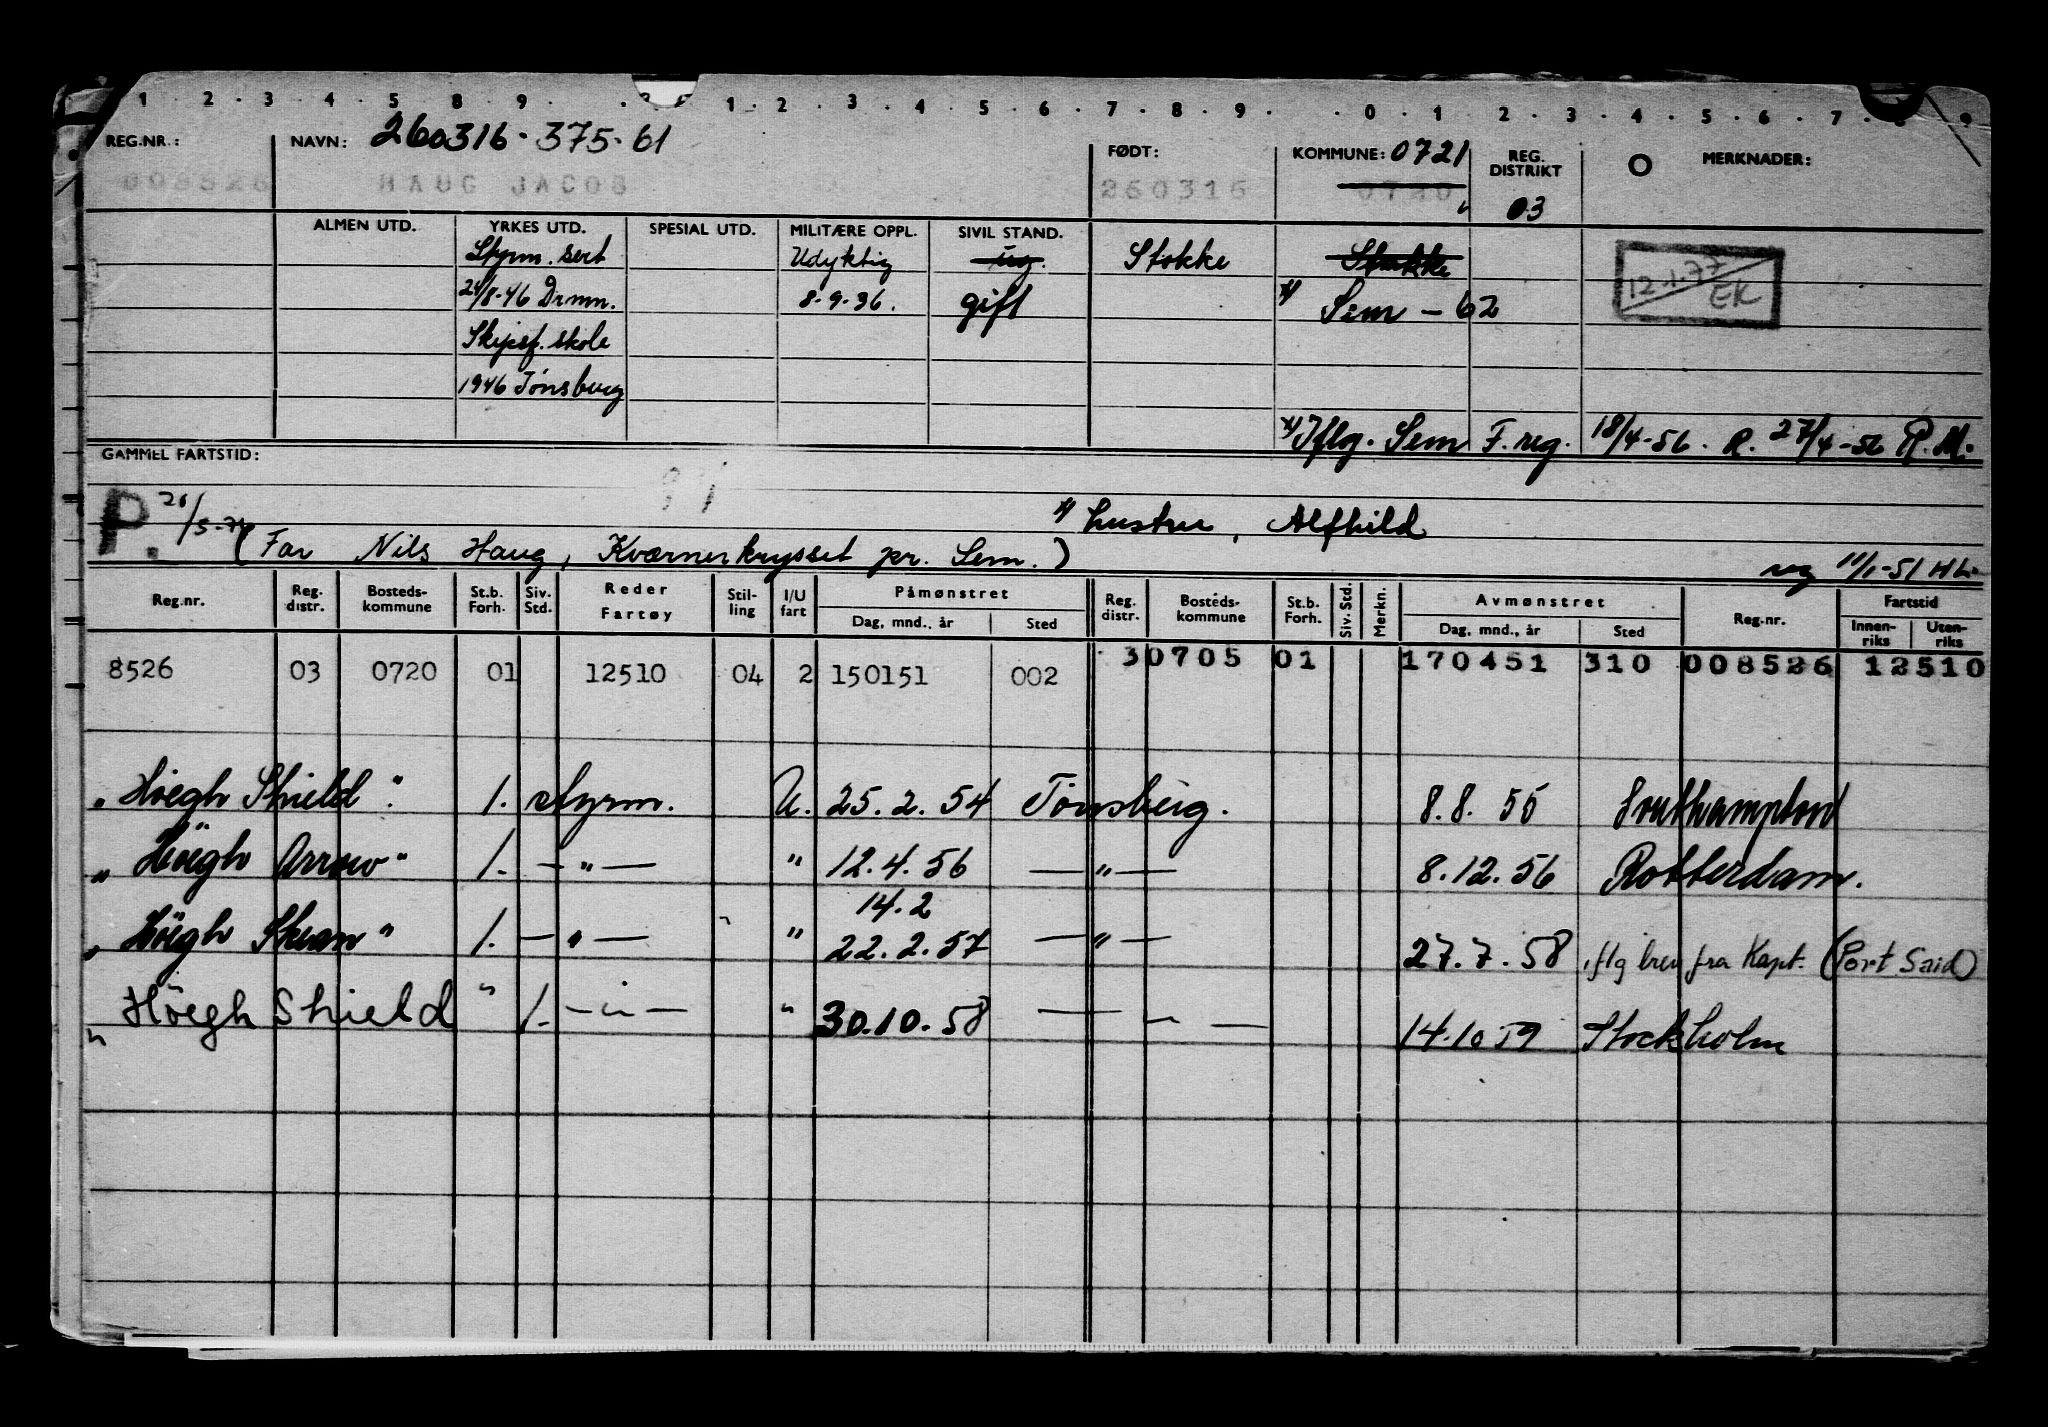 1 . 2 . 3 . 4 . 5 8 . 9 . . 1 . 2 . 3 . 4 . 5 . 6 . 7 . 8 . 9 . . 0 . 1 . 2 . 3 . 4 . 5 . 6 . 7 . 8 . 9
REG.NR.: NAVN: 260316-375-61 FØDT: KOMMUNE: 0721 REG. DISTRIKT O MERKNADER:
008526 HAUG JACOB 260316 0720 03
ALMEN UTD. YRKES UTD. SPESIAL UTD. MILITÆRE OPPL. SIVIL STAND.
Styrm. sert Udyktig ug. Stokke Stokke 12.1.77 EK
24/8-46 Drmn. 8-9-36. gift x) Sem - 62
Skipsf. skole
1946 Tønsberg
x) Iflg. Sem F.reg. 18/4-56. R. 27/4-56 R.M.
GAMMEL FARTSTID:
P. 20/5-74 x) hustru, Alfhild
(Far Nils Haug, Kværnerkrysset pr. Sem.) ug 11/1-51 HL.
Reg.nr. Reg. distr. Bosteds-kommune St.b. Forh. Siv. Std. Reder Fartøy Stil-ling I/U fart Påmønstret Reg. distr. Bosteds-kommune St.b. Forh. Siv. Std. Merkn. Avmønstret Reg.nr. Fartstid
Dag, mnd., år Sted Dag, mnd., år Sted Innen-riks Uten-riks
8526 03 0720 01 12510 04 2 150151 002 3 0705 01 170451 310 008526 12510
"Höegh Shield". 1. styrm. U. 25.2.54 Tønsberg. 8.8.55 Southampton
"Höegh Arrow" 1. - " - " 12.4.56 - " - 8.12.56 Rotterdam.
14.2
"Höegh Skean" 1. - " - " 22.2.57 - " - 27.7.58 iflg brev fra Kapt. (Port Said)
"Höegh Shield" 1. - " - " 30.10.58 - " - 14.10 59 Stockholm